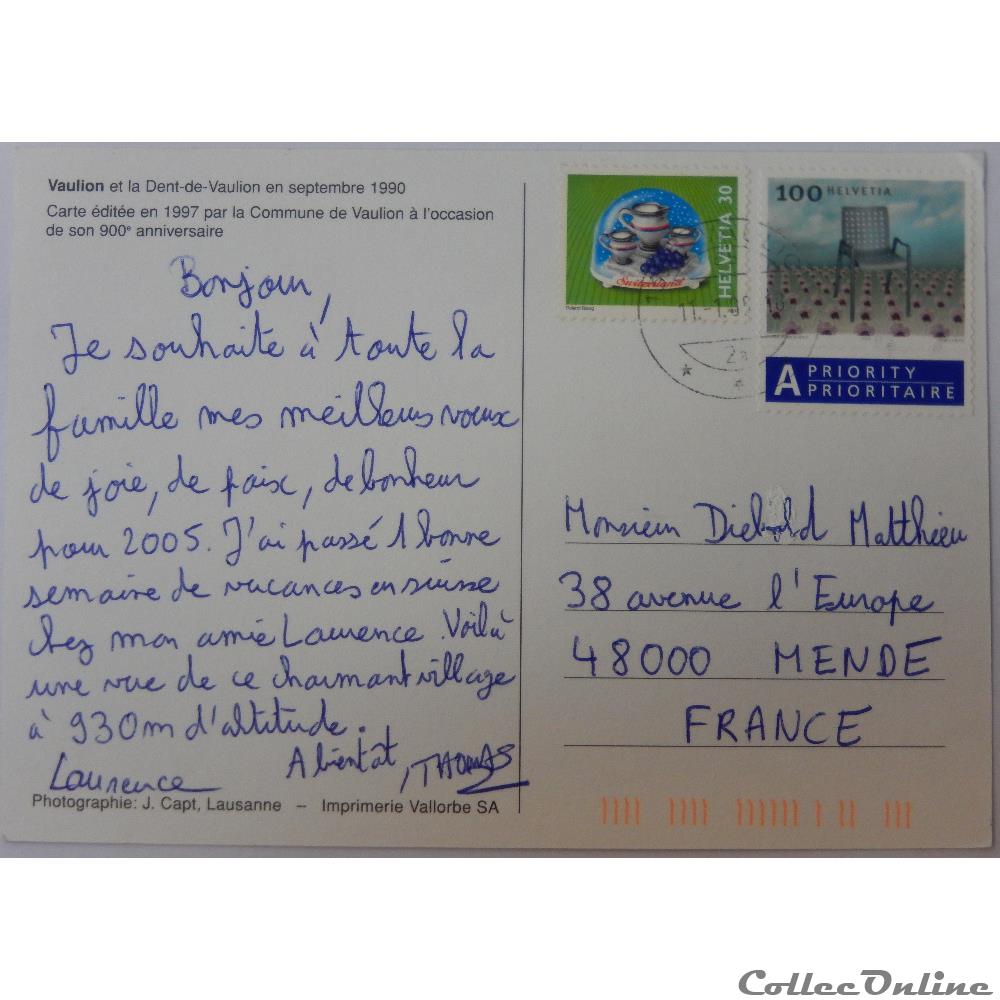 Vaulion et la Dent-de-Vaulion en septembre 1990
Carte éditée en 1997 par la Commune de Vaulion à l'occasion
de son 900e anniversaire
Bonjour,
Je souhaite à toute la
famille mes meilleurs voeux
de joie, de paix, de bonheur
pour 2005. J'ai passé 1 bonne
semaine de vacances en suisse
chez mon amie Laurence. Voilà
une vue de ce charmant village
à 930m d'altitude.
A bientôt, THOMAS
Laurence
Photographie: J. Capt, Lausanne – Imprimerie Vallorbe SA
HELVETIA 30
Switzerland
100 HELVETIA
A PRIORITY
PRIORITAIRE
Monsieur Diebold Matthieu
38 avenue l'Europe
48000 MENDE
FRANCE
CollecOnline